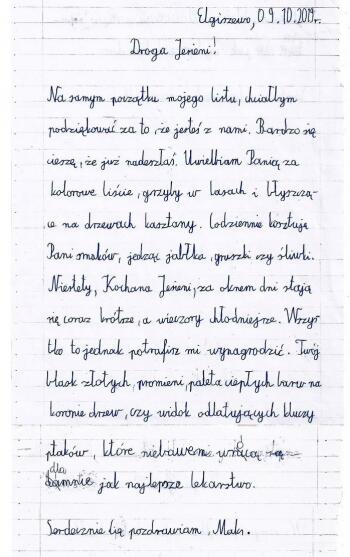 Elgiszewo, 09.10.2019r.
Droga Jesieni!
Na samym początku mojego listu, chciałbym
podziękować za to, że jesteś z nami. Bardzo się
cieszę, że już nadeszłaś. Uwielbiam Panią za
kolorowe liście, grzyby w lasach i błyszczą-
ce na drzewach kasztany. Codziennie kosztuję
Pani smaków, jedząc jabłka, gruszki czy śliwki.
Niestety, Kochana Jesieni, za oknem dni stają
się coraz krótsze, a wieczory chłodniejsze. Wszys
tko to jednak potrafisz mi wynagrodzić. Twój
blask złotych, promieni, paleta ciepłych barw na
koronie drzew, czy widok odlatujących kluczy
ptaków, które niebawem wrócą są
dla
mnie jak najlepsze lekarstwo.
Serdecznie Cię pozdrawiam, Maks.